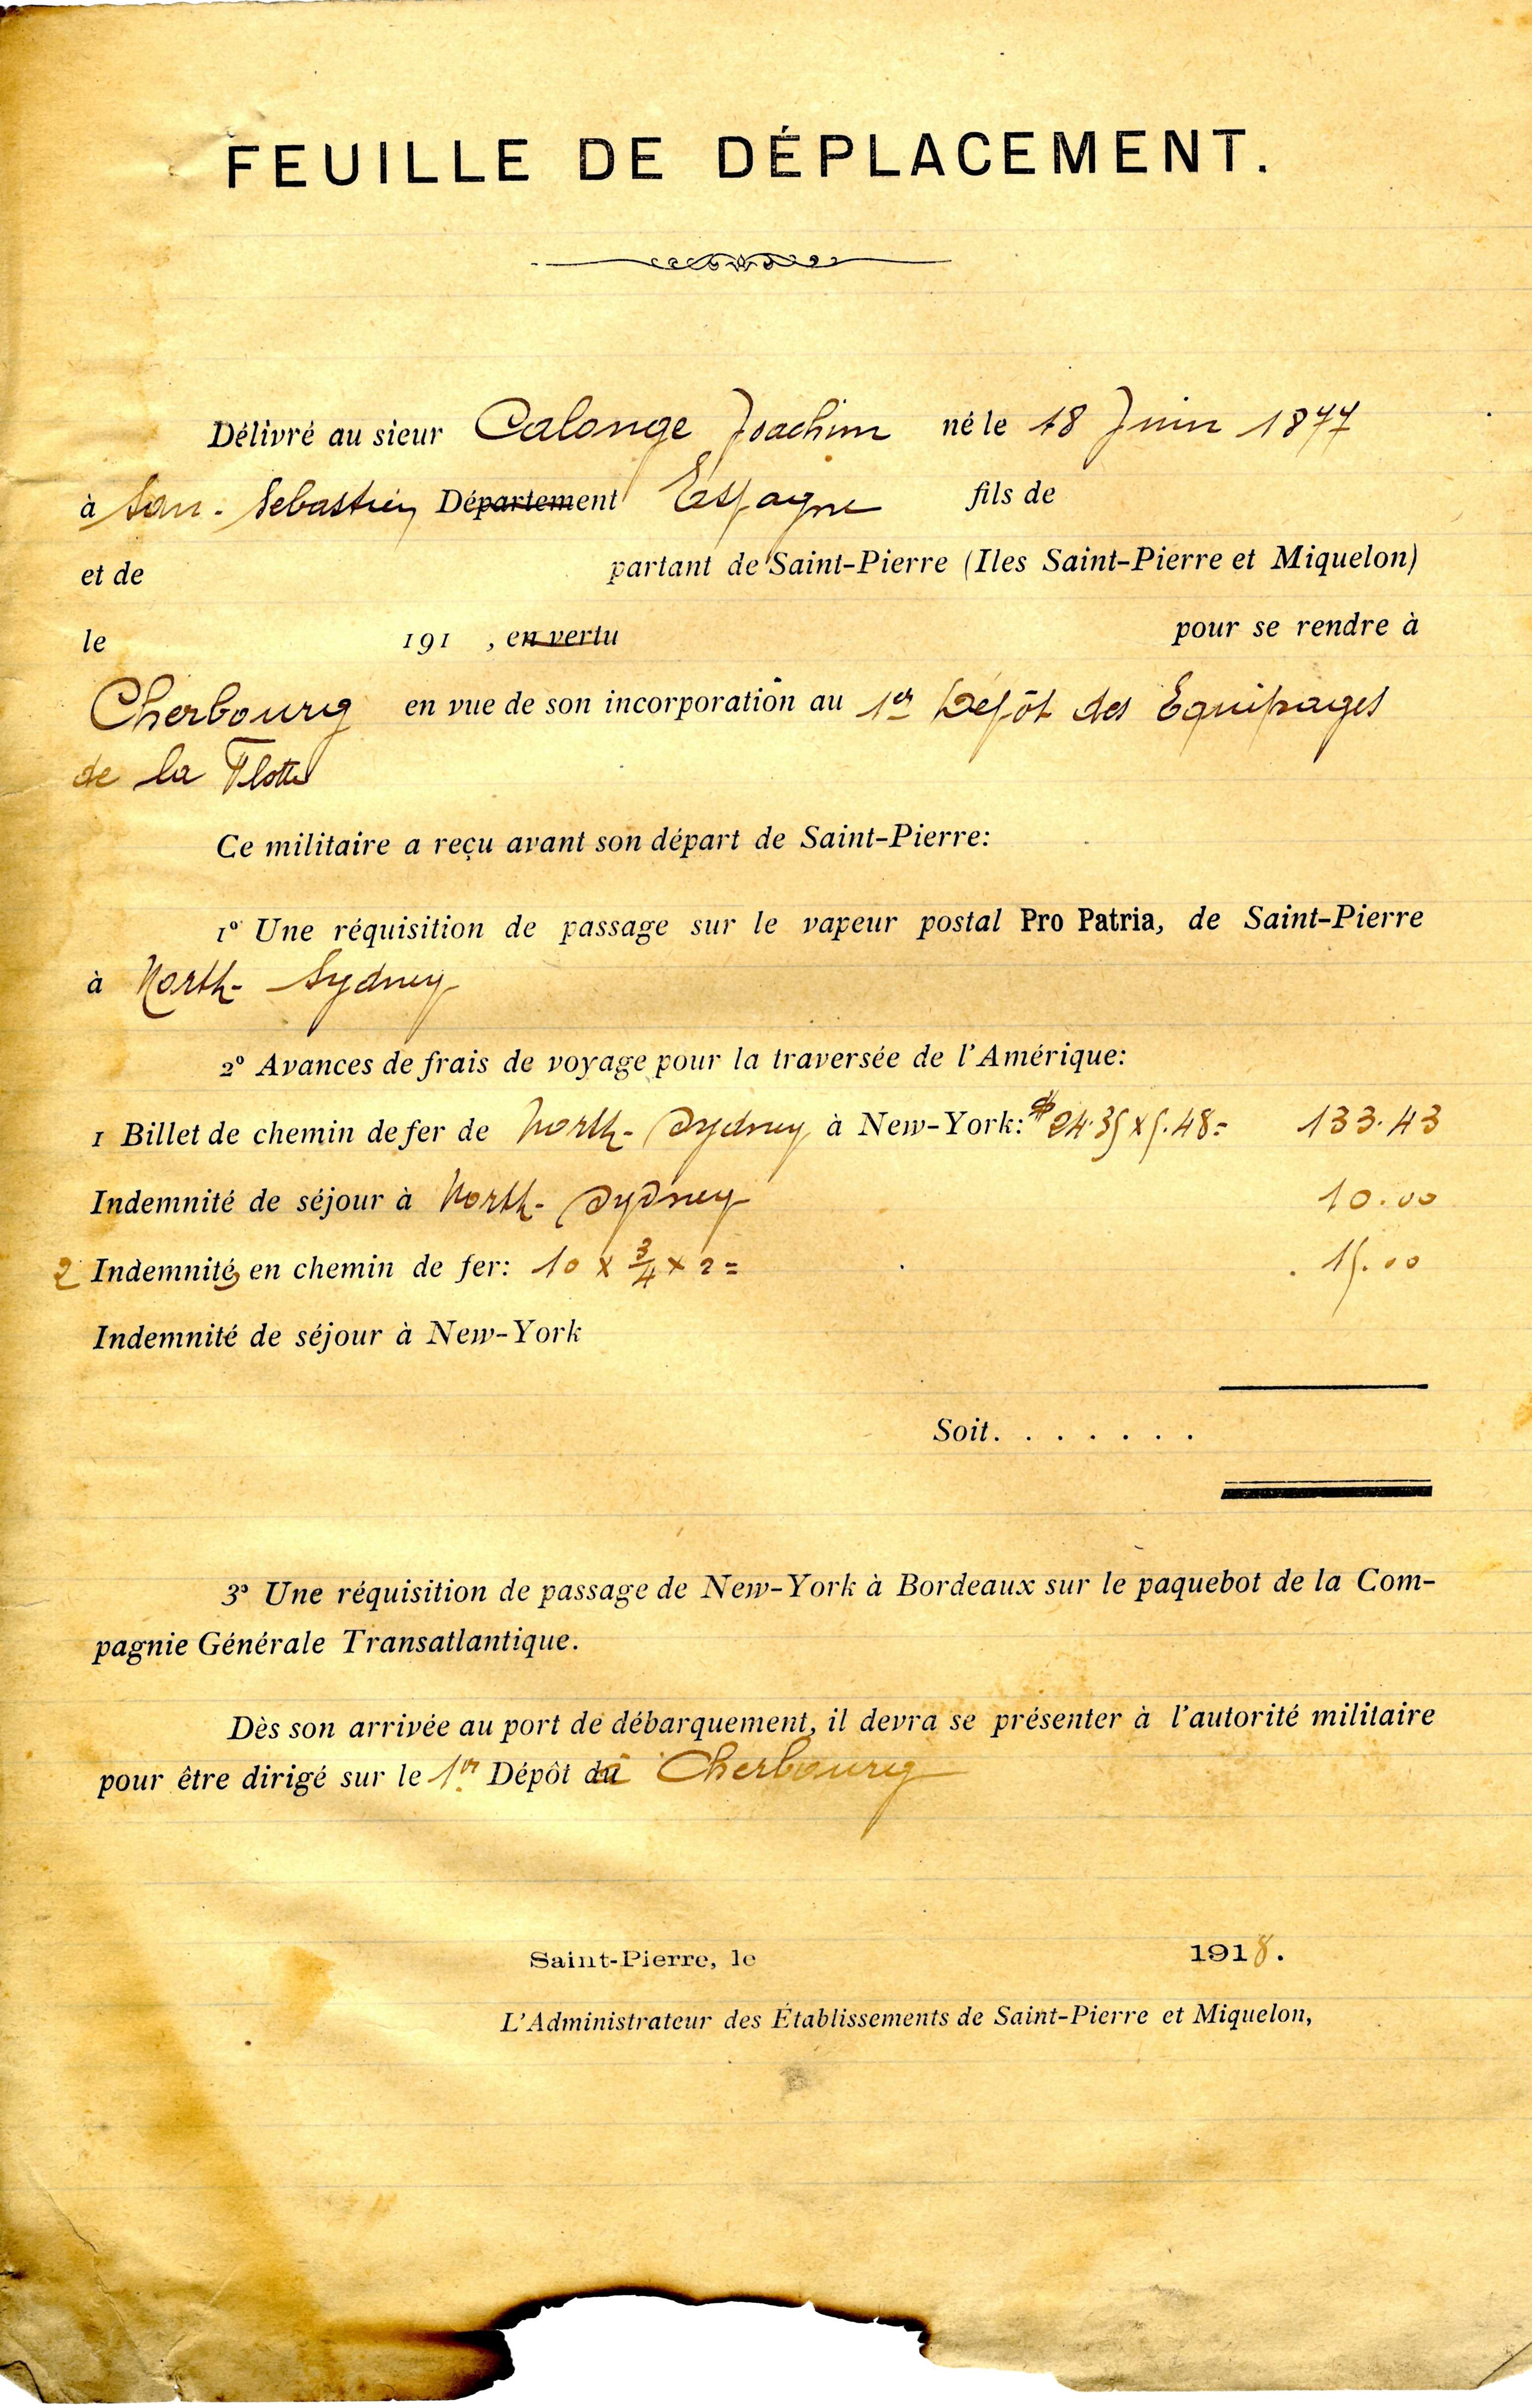 FEUILLE DE DÉPLACEMENT.
Délivré au sieur Calonge Joachim né le 18 Juin 1877
à San-Sebastien Département Espagne fils de
et de partant de Saint-Pierre (Iles Saint-Pierre et Miquelon)
le 191 , en vertu pour se rendre à
Cherbourg en vue de son incorporation au 1er Dépôt des Equipages
de la Flotte
Ce militaire a reçu avant son départ de Saint-Pierre:
1º Une réquisition de passage sur le vapeur postal Pro Patria, de Saint-Pierre
à North-Sydney
2º Avances de frais de voyage pour la traversée de l'Amérique:
1 Billet de chemin de fer de North-Sydney à New-York: $ 24.35 x 5.48= 133.43
Indemnité de séjour à North-Sydney 10.00
2 Indemnités en chemin de fer: 10 x 3/4 x 2 = 15.00
Indemnité de séjour à New-York
Soit. . . . . . .
3º Une réquisition de passage de New-York à Bordeaux sur le paquebot de la Com-
pagnie Générale Transatlantique.
Dès son arrivée au port de débarquement, il devra se présenter à l'autorité militaire
pour être dirigé sur le 1er Dépôt à Cherbourg
Saint-Pierre, le 1918.
L'Administrateur des Établissements de Saint-Pierre et Miquelon,